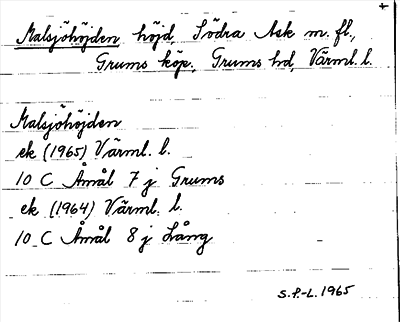 Malsjöhöjden höjd, Södra Ask m. fl.,
Grums köp., Grums hd, Värml. l.
Malsjöhöjden
ek (1965) Värml. l.
10 C Åmål 7 j Grums
ek (1964) Värml. l.
10 C Åmål 8 j Lång
S.P.-L. 1965